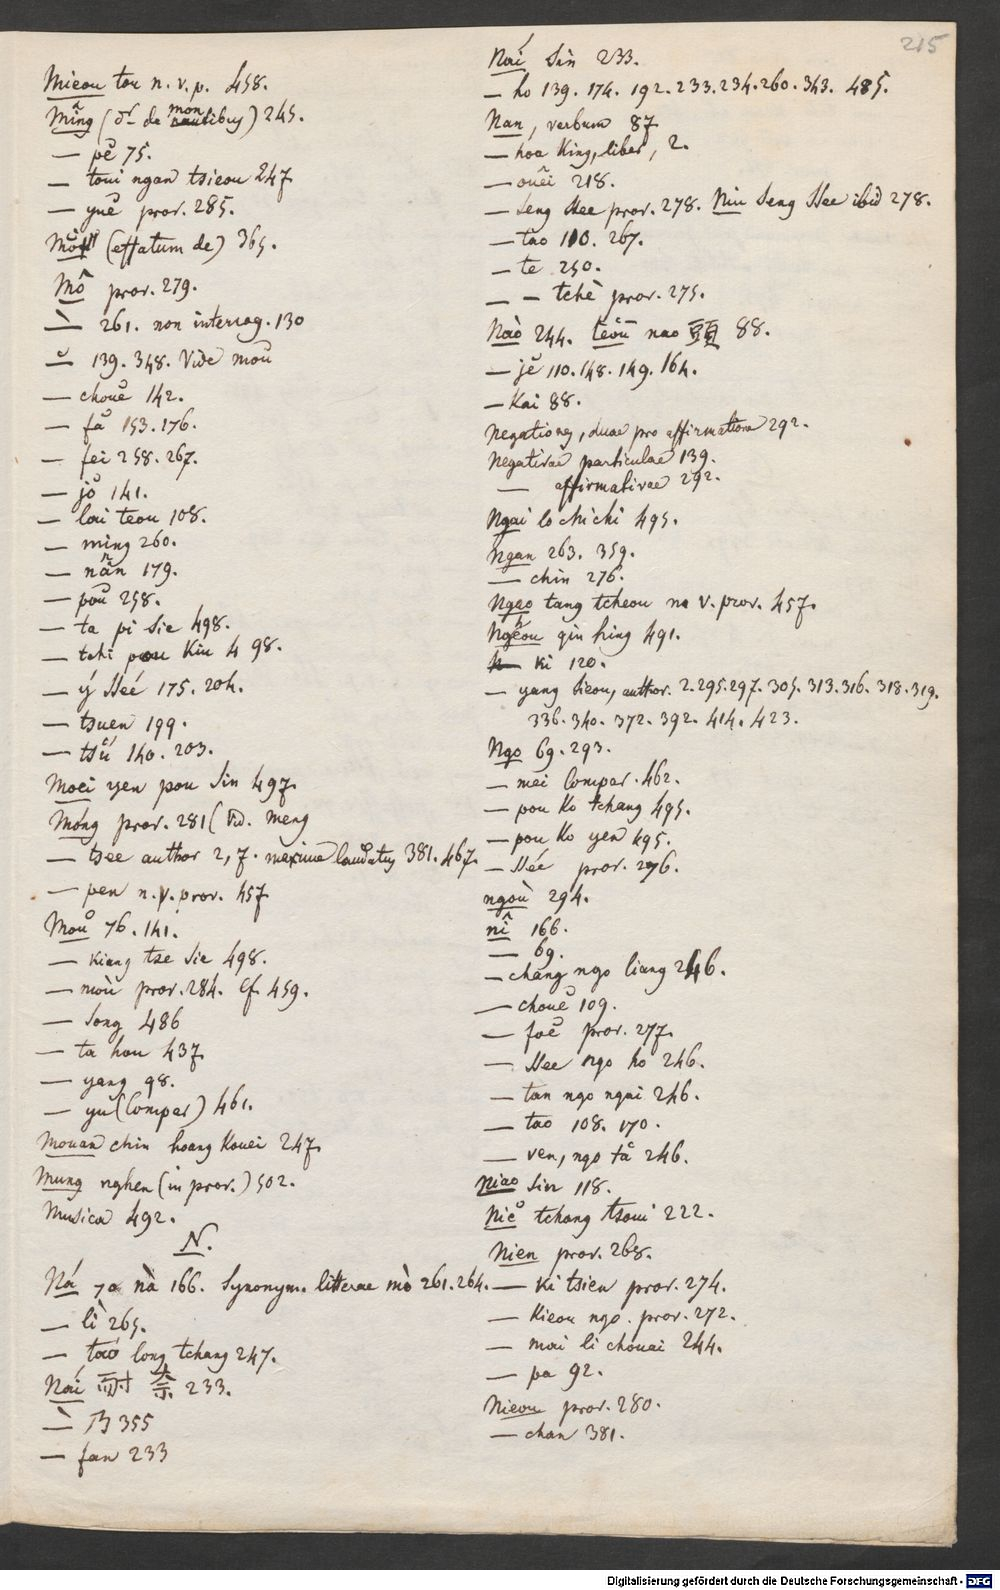 215
Mieou tou n. v. p. 458.
Mîng (dr de montibus) 245.
— pĕ 75.
— toui ngan tsieou 247.
— yuĕ prov. 285.
(effatum de) 365.
Mô prov. 279.
— ̀ 261. non interrog. 130
— ̆ 139. 348. Vide moŭ
— chouĕ 142.
— fă 153. 176.
— fei 258. 267.
— jŏ 141.
— lai teou 108.
— ming 260.
— nân 179.
— poŭ 258.
— ta pi sie 498.
— tchi pou kiu 498.
— ý ssee 175. 204.
— tsuen 199.
— tsŭ 140. 203.
Moei yen pou sin 497.
Mong prov. 281 (Vid. meng
— tsee author 2, 7. maxime laudatus 381. 467.
— pen n. v. prov. 457
Moŭ 76. 141.
— kiang tse sie 498.
— moŭ prov. 284. Cf. 459.
— song 486
— ta hou 437.
— yang 98.
— yu (Compar) 461.
Mouan chin hoang kouei 247.
Mung nghen (in prov.) 502.
Musica 492.
N.
Ná 70 nà 166. Synonym. litterae mò 261. 264.
— lì 265.
— táo long tchang 247.
Nái 耐 奈 233.
— ̀ 乃 355
— fan 233
Nái sin 233.
— ho 139. 174. 192. 233. 234. 260. 343. 485.
Nan, verbum 87
— hoa King, liber, 2.
— ouêi 218.
— seng ssee prov. 278. Niu seng ssee ibid 278.
— tao 110. 267.
— te 250.
— — tchè prov. 275.
Náo 244. teôu nao 頭 88.
— jĕ 110. 148. 149. 164.
— Kai 88.
Negationes, duae pro affirmatione 292.
Negativae particulae 139.
— affirmativae 292.
Ngai lo chi chi 495.
Ngan 263. 359.
— chin 276.
Ngao tang tcheou n. v. prov. 457.
Ngĕou gin hing 491.
— ki 120.
— yang sieou, author. 2. 295. 297. 305. 313. 316. 318. 319.
336. 340. 372. 392. 414. 423.
Ngo 69. 293.
— mei Compar. 462.
— pou ko tchang 495.
— pou ko yen 495.
— ssée prov. 276.
ngoù 294.
nî 166.
— 69.
— chang ngo liang 246.
— chouĕ 109.
— foĕ prov. 277.
— ssee ngo ho 246.
— tan ngo ngai 246.
— tao 108. 170.
— ven, ngo tă 246.
Niao sin 118.
Niĕ tchang tsoui 222.
Nien prov. 268.
— ki tsien prov. 274.
— kieou ngo. prov. 272.
— moai li chouai 244.
— pa 92.
Nieou prov. 280.
— chan 381.
Digitalisierung gefördert durch die Deutsche Forschungsgemeinschaft - DFG